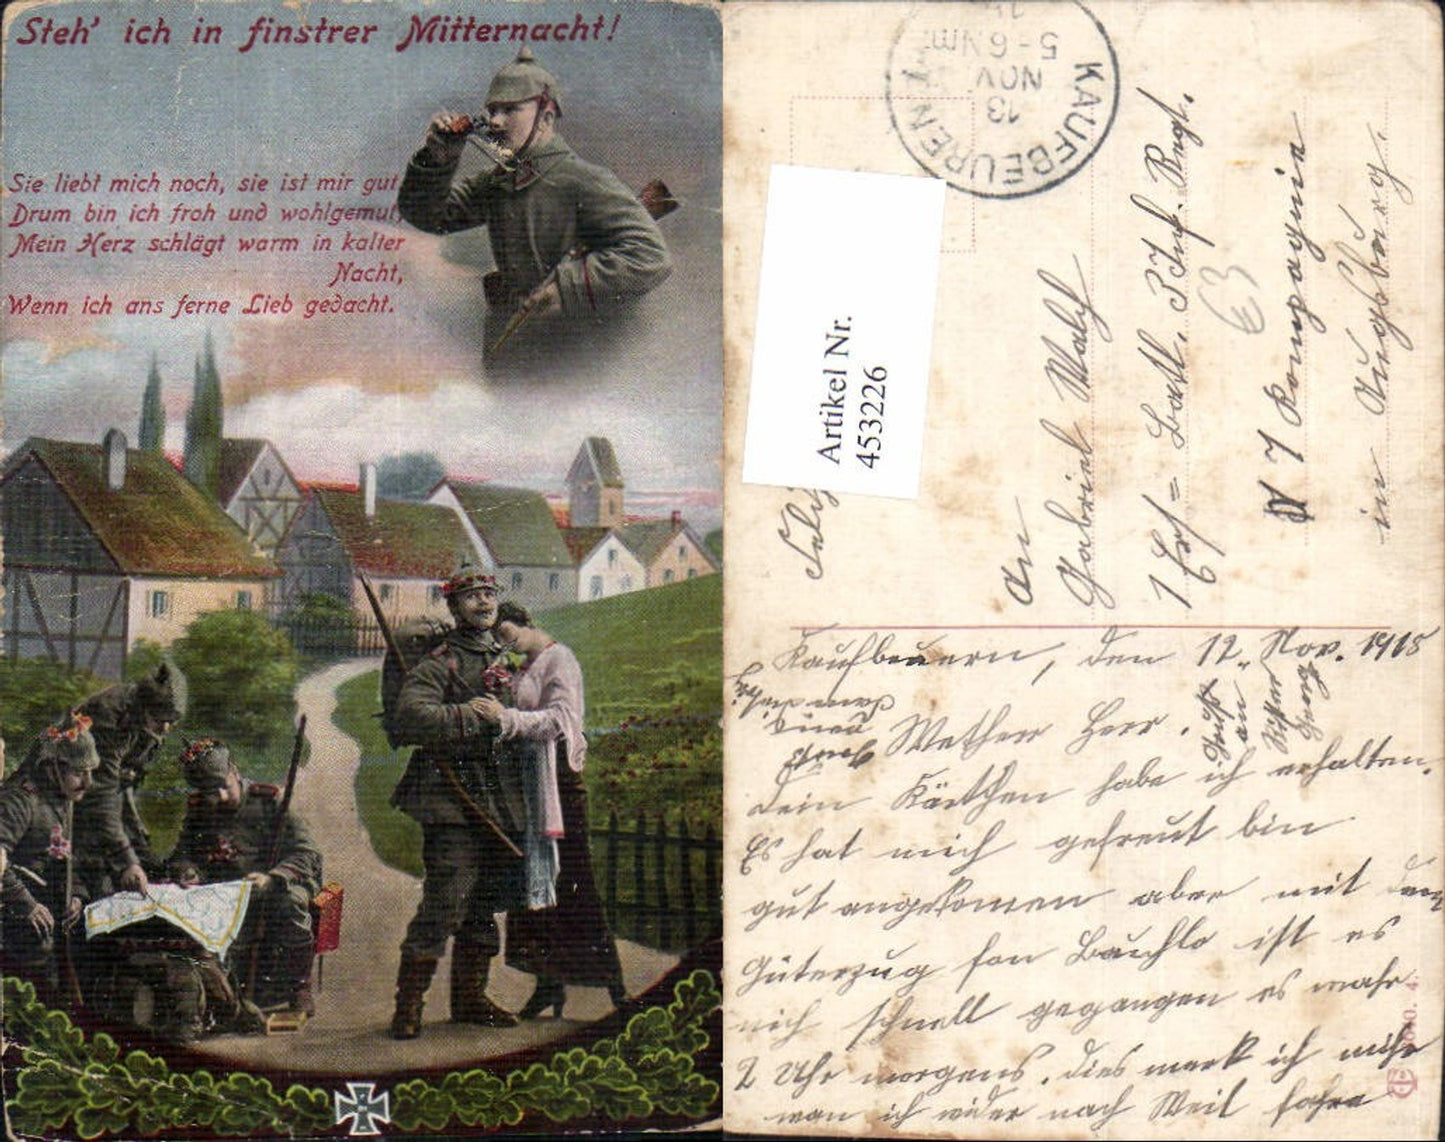 Steh' ich in finstrer Mitternacht!
Sie liebt mich noch, sie ist mir gut
Drum bin ich froh und wohlgemut,
Mein Herz schlägt warm in kalter
Nacht,
Wenn ich ans ferne Lieb gedacht.
KAUFBEUREN
13
NOV
5-6 Nm
Artikel Nr.
453226
An
Gabriel
1 Ers = Batl. 3 Inf. Regt.
7 Kompagnie
in Augsburg.
€3
Kaufbeuern, den 12. Nov. 1915
Werther Herr.
Dein Kärtchen habe ich erhalten.
Es hat mich gefreut bin
gut angekommen aber mit dem
Güterzug fon Buchlo ist es
nich schnell gegangen es wahr
2 Uhr morgens. dies merk ich mihr
wan ich wider nach Weil fahre